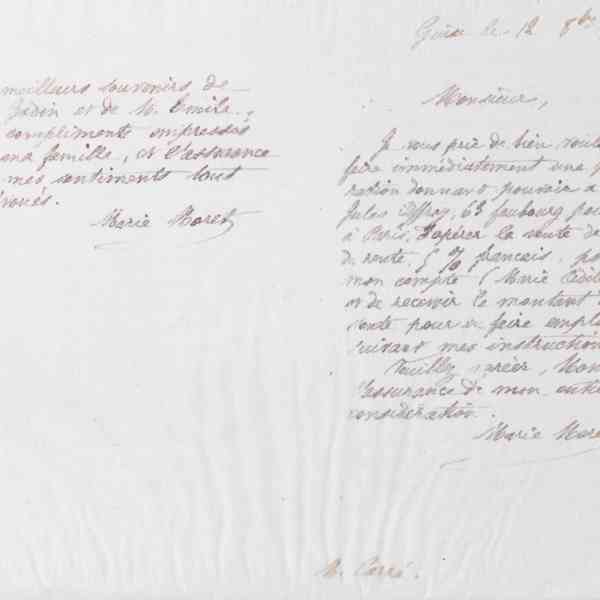 meilleurs souvenirs de
et de M. Emile,
compliments empressés
famille, et l'assurance
mes sentiments tout
Marie Moret
Guise le 12 8bre
Monsieur,
Je vous prie de bien
faire immédiatement une
donnant pouvoir à
Jules 63 faubourg
à Paris, d'opérer la vente de
de rente, 5 % français,
mon compte (Marie
et de recevoir le montant
pour en faire
suivant mes
Veuillez agréer,
l'assurance de mon
considération.
Marie
M. Carré.